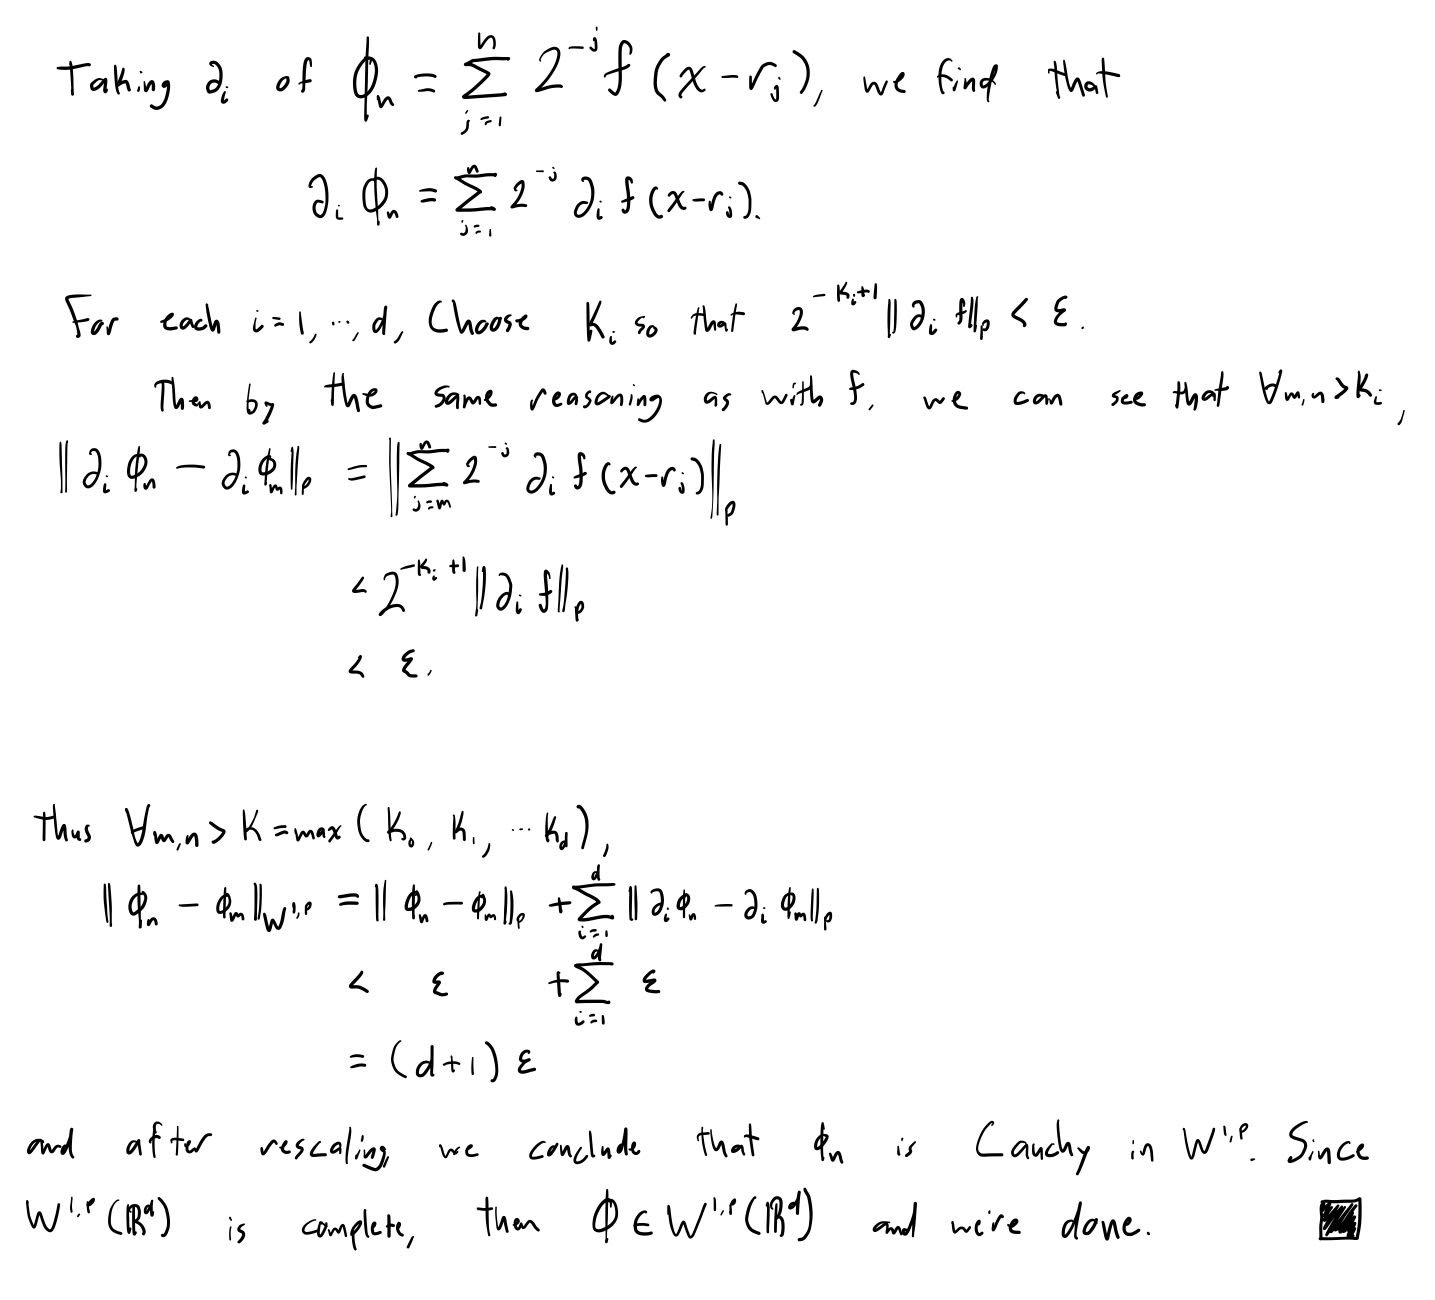 Taking ∂_i of ϕ_n = ∑_{j=1}^{n} 2^{-j} f(x-r_j), we find that
∂_i ϕ_n = ∑_{j=1}^{n} 2^{-j} ∂_i f(x-r_j).
For each i=1,…,d, Choose K_i so that 2^{-K_i+1} ‖∂_i f‖_p < ε.
Then by the same reasoning as with f, we can see that ∀m,n>K_i,
‖∂_i ϕ_n − ∂_i ϕ_m‖_p = ‖∑_{j=m}^{n} 2^{-j} ∂_i f(x-r_j)‖_p
< 2^{-K_i+1} ‖∂_i f‖_p
< ε.
thus ∀m,n > K = max(K_0, K_1, … K_d),
‖ϕ_n − ϕ_m‖_{W^{1,p}} = ‖ϕ_n − ϕ_m‖_p + ∑_{i=1}^{d} ‖∂_i ϕ_n − ∂_i ϕ_m‖_p
< ε + ∑_{i=1}^{d} ε
= (d+1) ε
and after rescaling, we conclude that ϕ_n is Cauchy in W^{1,p}. Since
W^{1,p}(ℝ^d) is complete, then ϕ ∈ W^{1,p}(ℝ^d) and we're done. ■